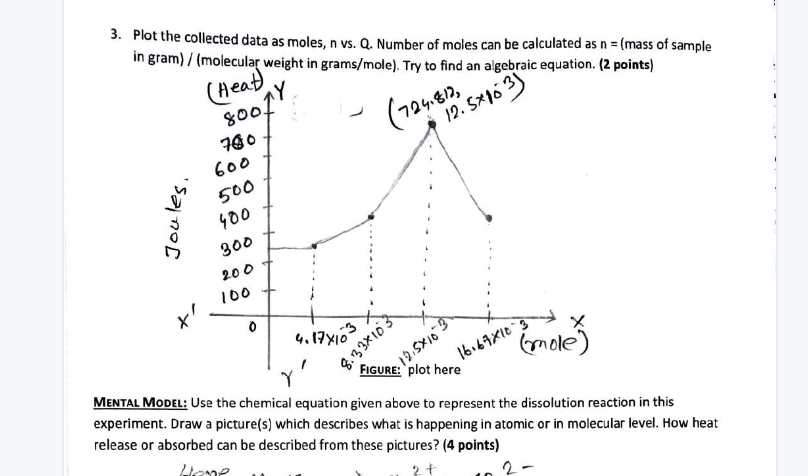 3. Plot the collected data as moles, n vs. Q. Number of moles can be calculated as n = (mass of sample
in gram) / (molecular weight in grams/mole). Try to find an algebraic equation. (2 points)
(Heat) Y
(724.812,
12.5×10⁻³)
800
700
600
500
400
300
200
100
Joules.
X'
0
4.17×10⁻³
8.33×10⁻³
12.5×10⁻³
16.67×10⁻³
X
(mole)
Y'
FIGURE: plot here
MENTAL MODEL: Use the chemical equation given above to represent the dissolution reaction in this
experiment. Draw a picture(s) which describes what is happening in atomic or in molecular level. How heat
release or absorbed can be described from these pictures? (4 points)